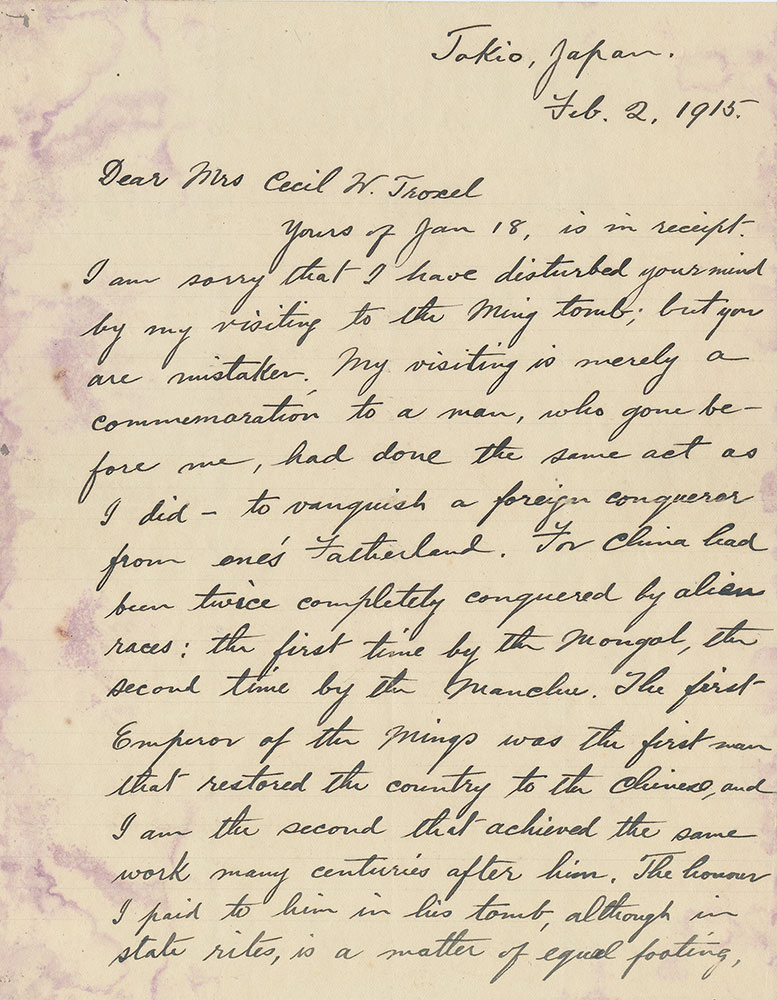 Tokio, Japan.
Feb. 2, 1915.
Dear Mrs Cecil W. Troxel
Yours of Jan 18, is in receipt.
I am sorry that I have disturbed your mind
by my visiting to the Ming tomb; but you
are mistaken. My visiting is merely a
commemaration to a man, who gone be-
fore me, had done the same act as
I did – to vanquish a foreign conqueror
from one's Fatherland. For China had
been twice completely conquered by alien
races: the first time by the Mongol, the
second time by the Manchu. The first
Emperor of the Mings was the first man
that restored the country to the Chinese, and
I am the second that achieved the same
work many centuries after him. The honour
I paid to him in his tomb, although in
state rites, is a matter of equal footing,